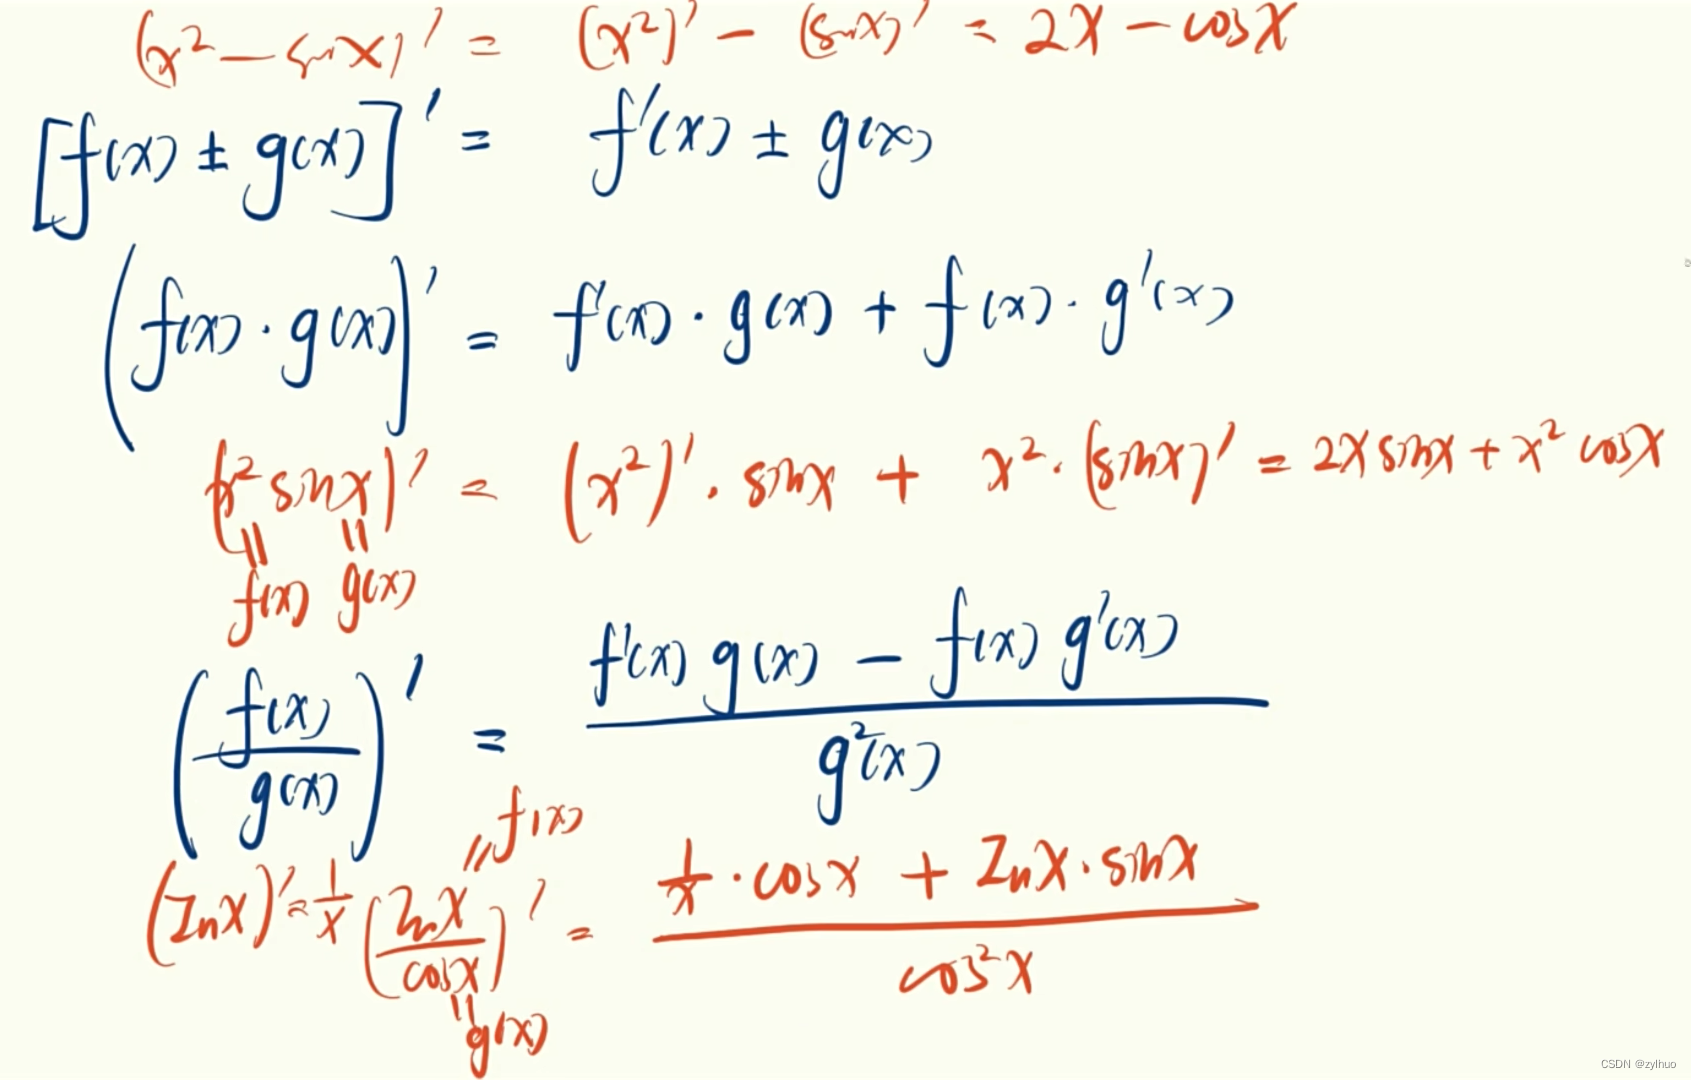 (x² - sinx)' = (x²)' - (sinx)' = 2x - cosx
[f(x) ± g(x)]' = f'(x) ± g(x)
(f(x) · g(x))' = f'(x) · g(x) + f(x) · g'(x)
(x² sinx)' = (x²)' · sinx + x² · (sinx)' = 2x sinx + x² cosx
f(x) g(x)
f'(x) g(x) - f(x) g'(x)
(f(x)/g(x))' =
g²(x)
f(x)
(lnx)' = 1/x (lnx/cosx)' = (1/x · cosx + lnx · sinx)/cos²x
g(x)
CSDN @zylhuo